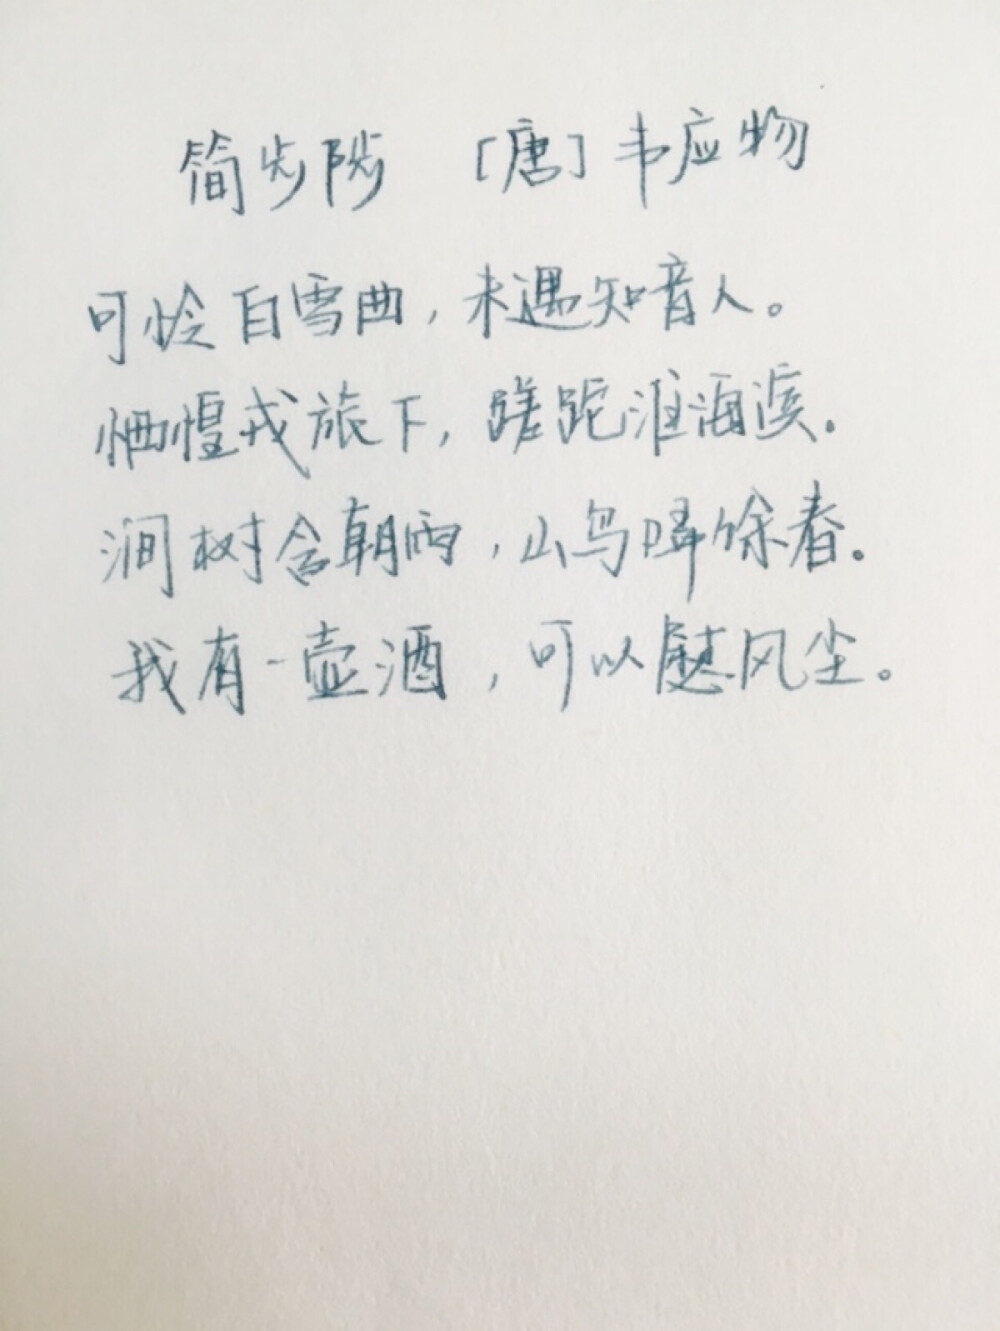 简步陟 [唐]韦应物
可怜白雪曲,未遇知音人。
恓惶戎旅下,蹉跎淮海滨.
涧树含朝雨,山鸟哢馀春。
我有一壶酒,可以慰风尘。